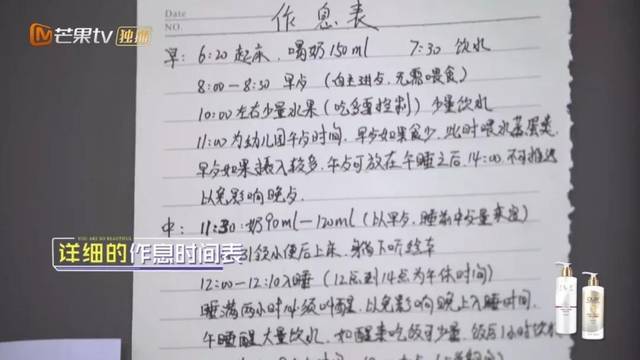 芒果tv 独播
Date
NO.
作息表
早: 6:20起床, 喝奶150ml 7:30 饮水
8:00-8:30 早点 (自主进点, 无需喂食)
10:00左右少量水果 (吃多要控制) 少量饮水
11:00为幼儿园午点时间, 早点如果食少, 此时喂水蒸蛋类
早点如果摄入较多, 午点可放在午睡之后, 14:00, 不可推迟
以免影响晚点.
中: 11:30:奶90ml-120ml (以早点、睡前中量来定)
小便后上床,
12:00-12:10入睡 (12点到14点为午休时间)
睡满两小时必须叫醒, 以免影响晚上入睡时间.
午睡醒大量饮水, 如醒来吃饭可少量, 饭后1小时饮水
YOU ARE SO BEAUTIFUL
详细的作息时间表